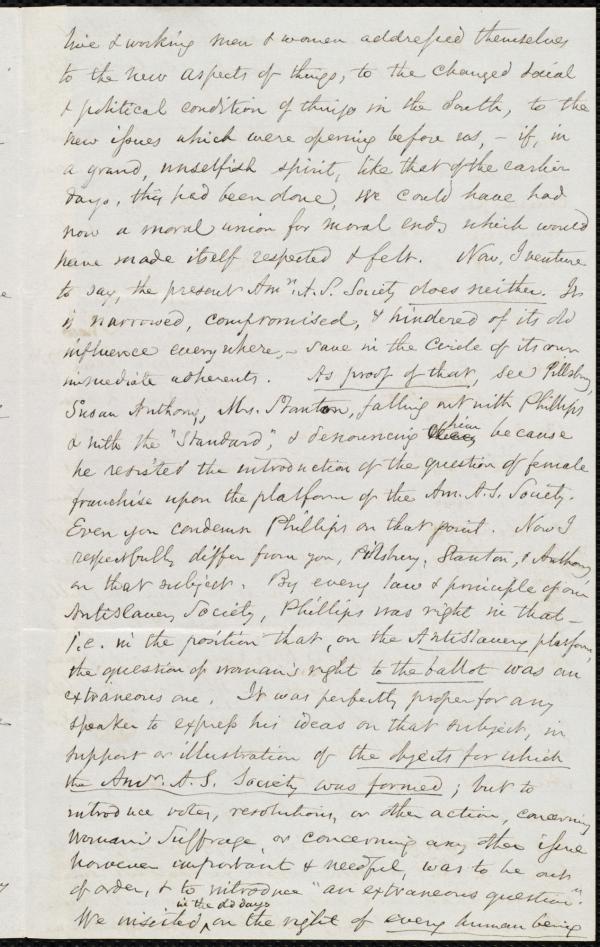 live & working men & women addressed themselves
to the new aspects of things, to the changed social
& political condition of things in the South, to the
new issues which were opening before us, – if, in
a grand, unselfish spirit, like that of the earlier
days, this had been done, we could have had
now a moral union for moral ends which would
have made itself respected & felt. Now, I venture
to say, the present Amn. A.S. Society does neither. It
is narrowed, compromised, & hindered of its old
influence everywhere, – save in the circle of its own
immediate adherents. As proof of that, see Pillsbury,
Susan Anthony, Mrs. Stanton, falling out with Phillips
& with the "Standard", & denouncing him because
he resisted the introduction of the question of female
franchise upon the platform of the Am. A.S. Society.
Even you condemn Phillips on that point. Now I
respectfully differ from you, Pillsbury, Stanton, & Anthony
on that subject. By every law & principle of our
Antislavery Society, Phillips was right in that –
i.e. in the position that, on the Antislavery platform,
the question of woman's right to the ballot was an
extraneous one. It was perfectly proper for any
speaker to express his ideas on that subject, in
support or illustration of the objects for which
the Amn. A.S. Society was formed; but to
introduce votes, resolutions, or other action, concerning
Woman's Suffrage, or concerning any other issue
however important & needful, was to be out
of order, & to introduce "an extraneous question".
We insisted, in the old days, on the right of every human being